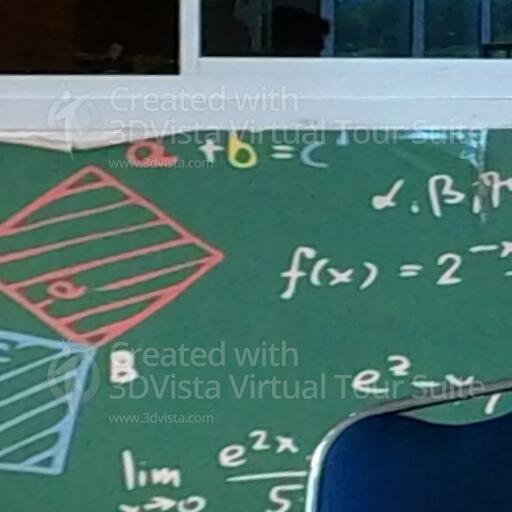 Created with
3DVista Virtual Tour Suite
www.3dvista.com
a + b = c
α, β,
f(x) = 2^-x
a
B
Created with
3DVista Virtual Tour Suite
www.3dvista.com
e² - x,
lim x→0 e^2x / 5